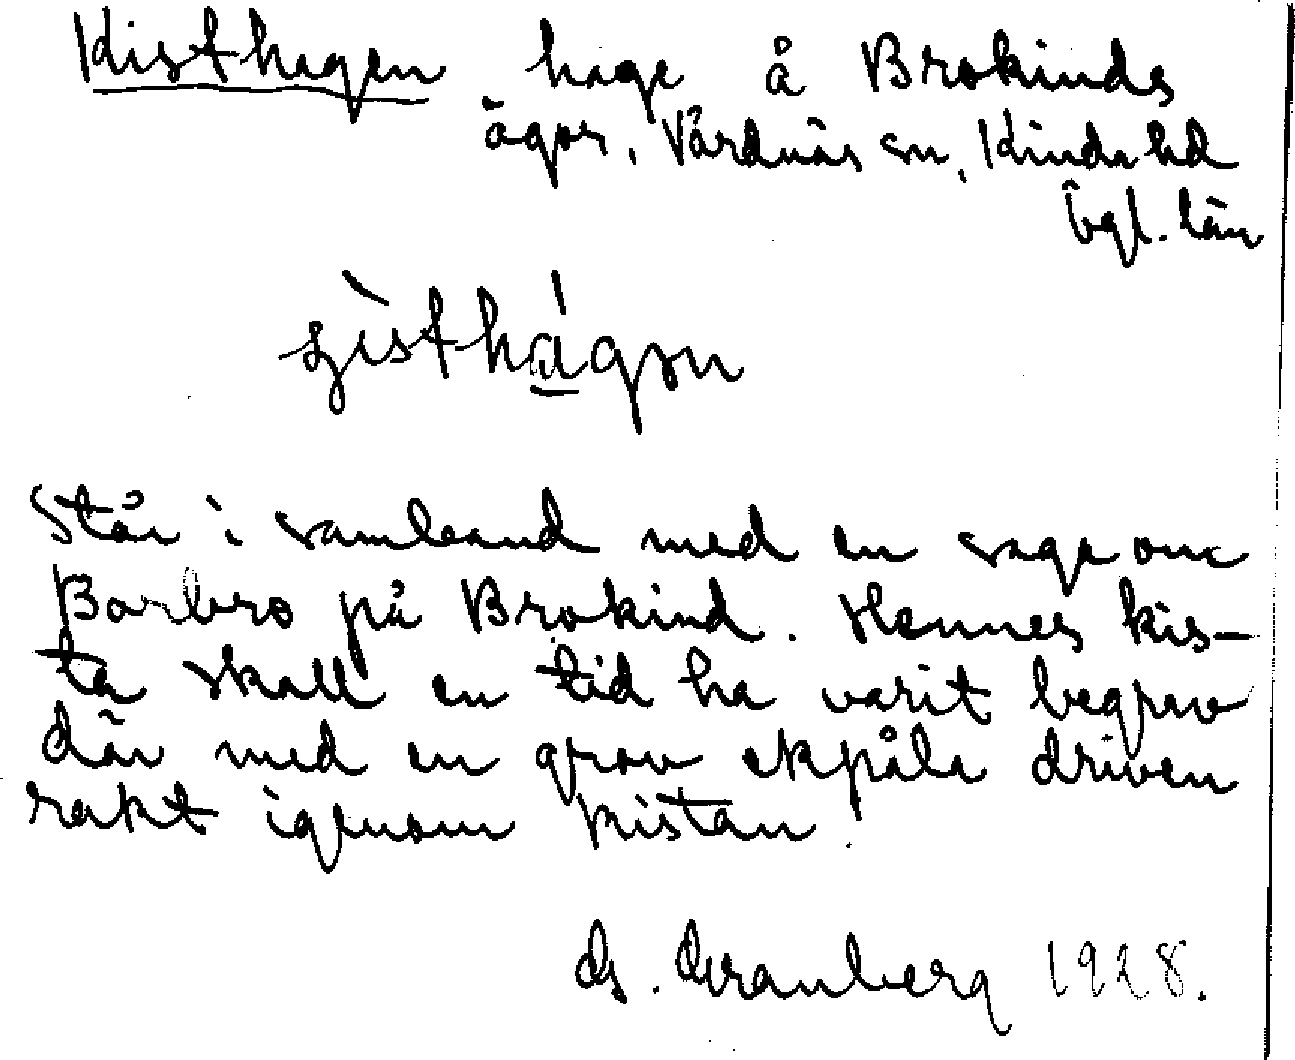 Kisthagen hage å Brokinds
ägor, Vårdnäs sn, Kinds hd
Ögl. län
Står i samband med en saga om
Barbro på Brokind. Hennes kis-
ta skall en tid ha varit begrav
där med en grov ekpåle driven
rakt igenom kistan.
G. Granberg 1928.